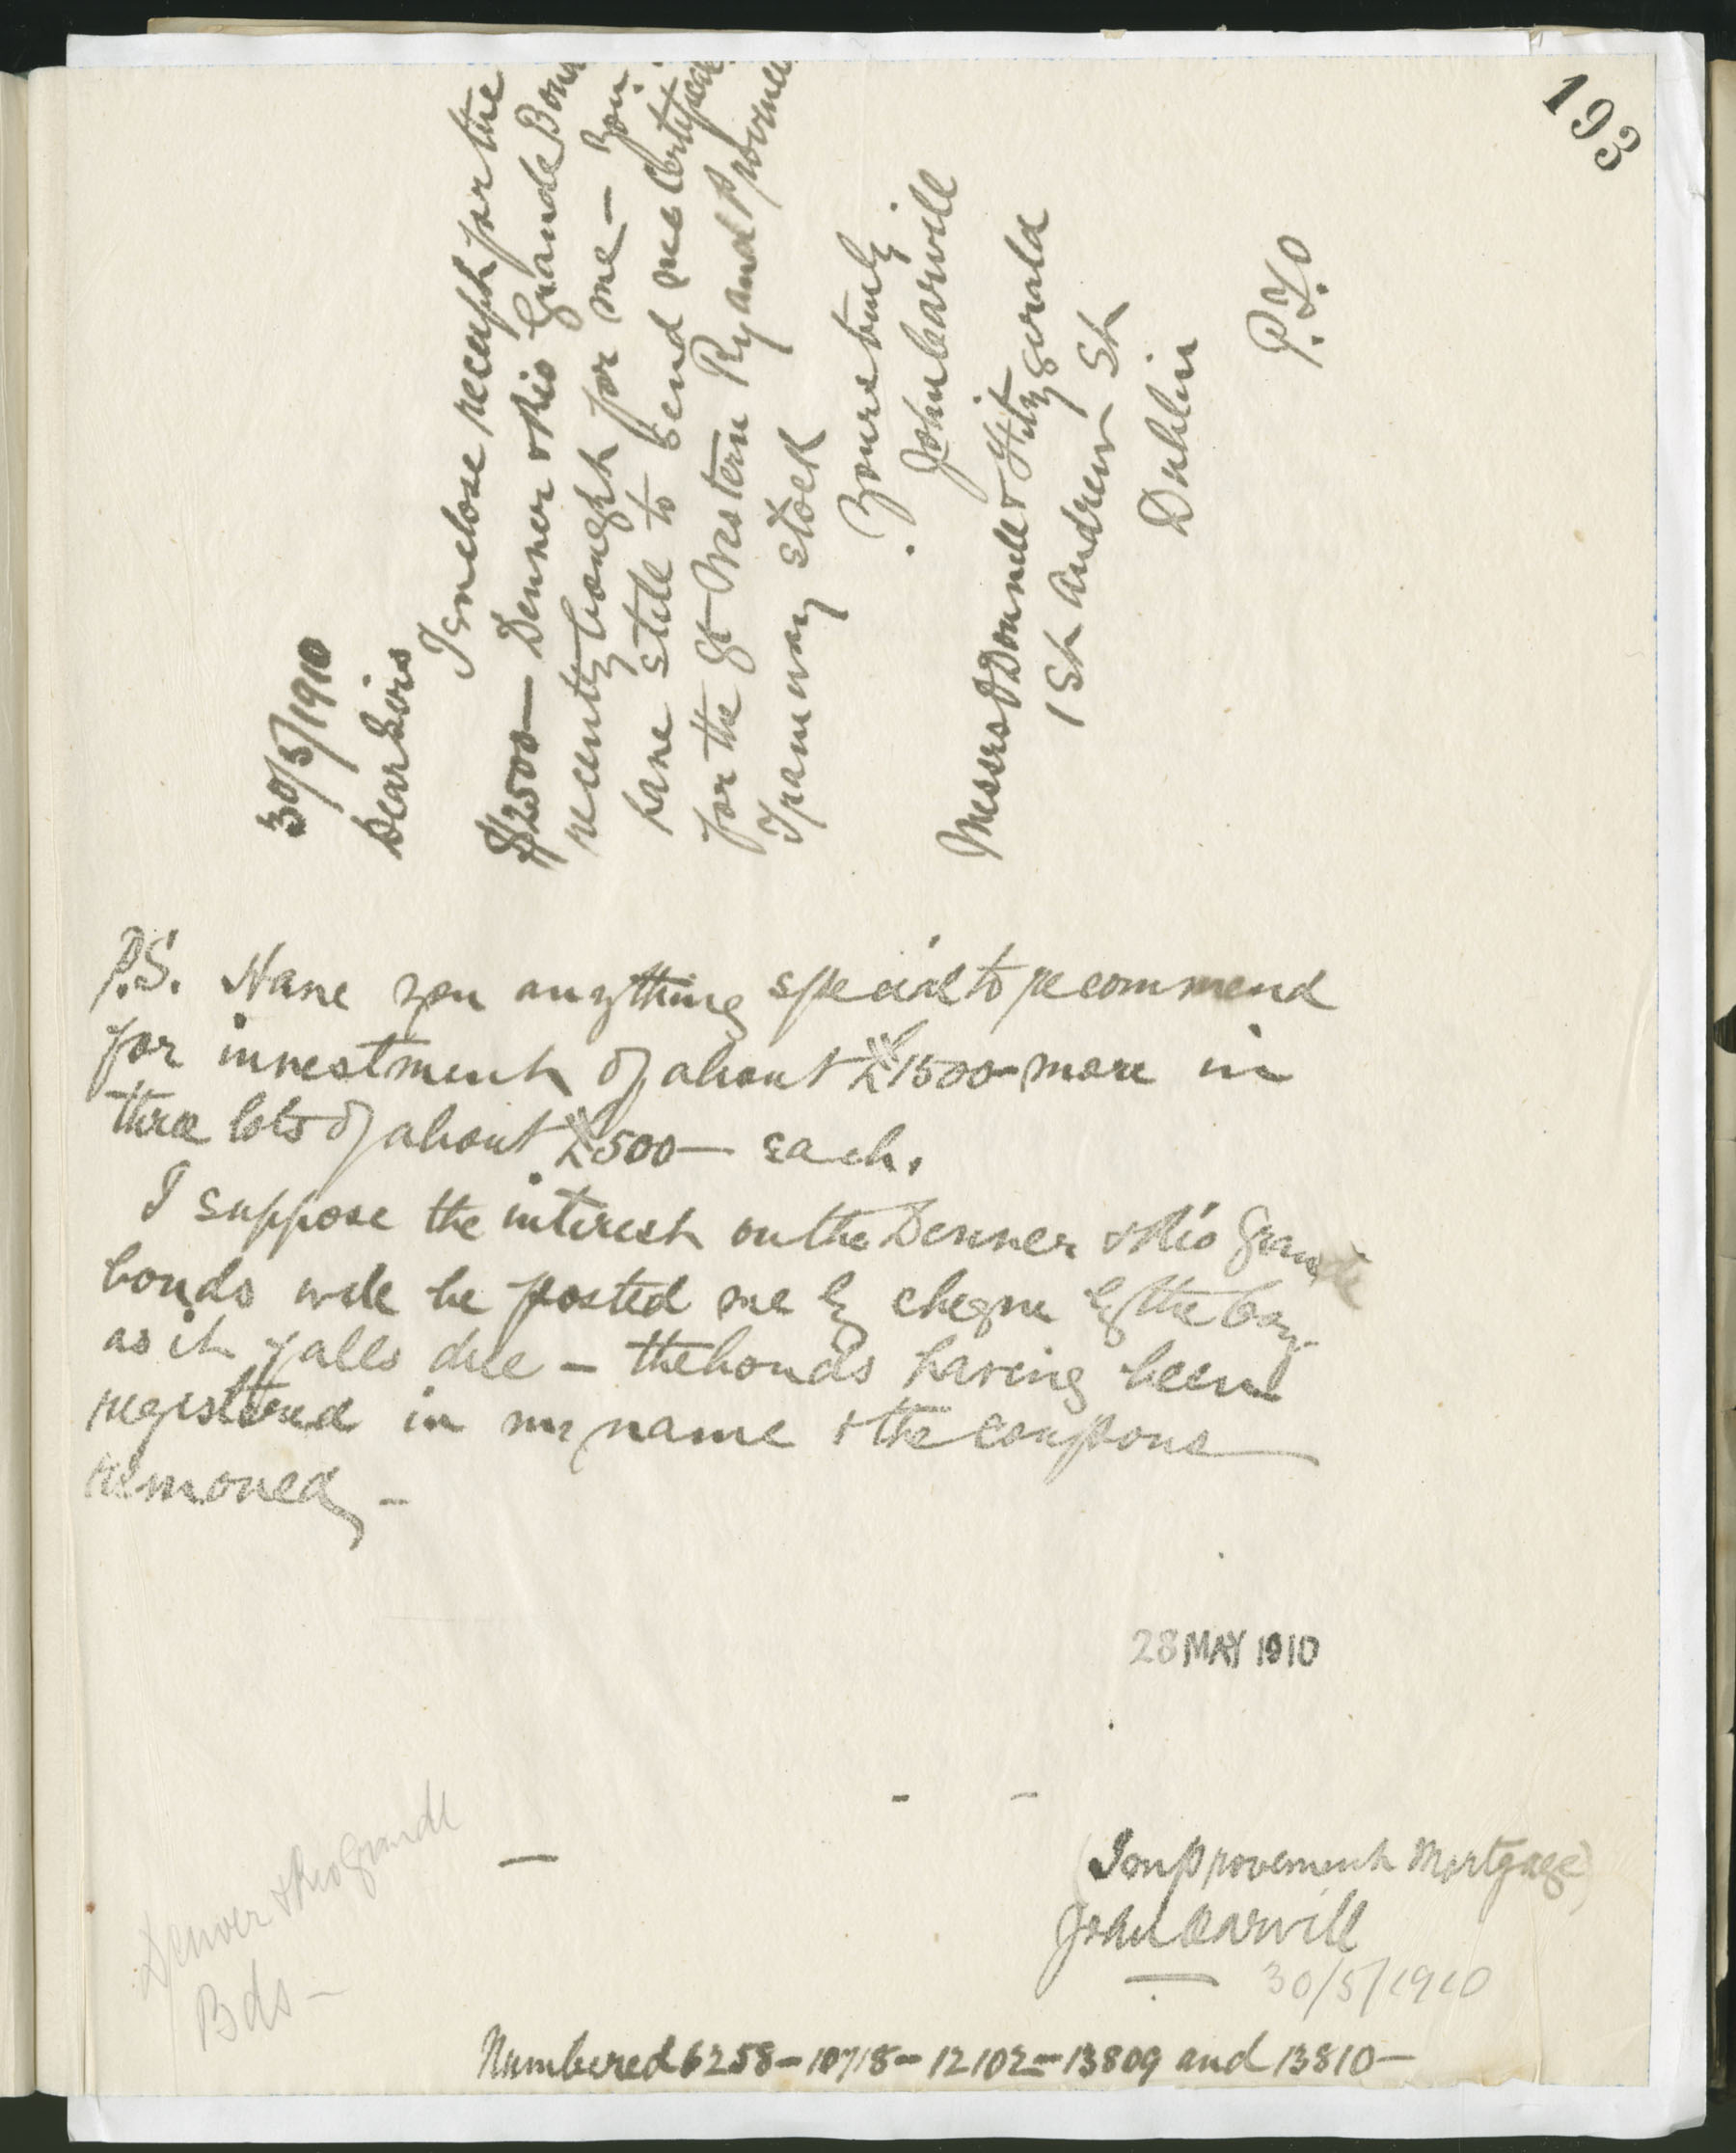 193
30/5/1910
Dear Sirs
I enclose receipt for the
$2500 — Denver & Rio Grande Bon
recently bought for me — You
have still to send me Certificate
for the Gt Western Ry and Improvemen
Tramway Stock
Yours truly
John Carvill
Messrs O'Donnell & Fitzgerald
1 St Andrew St
Dublin
P.T.O
P.S. Have you anything special to recommend
for investment of about £1500 — more in
three lots of about £500 — each.
I suppose the interest on the Denver & Rio Grande
bonds will be posted me by cheque by the Coy
as it falls due — the bonds having been
registered in my name & the coupons
removed —
28 MAY 1910
(Improvement Mortgage)
John Carvill
30/5/1910
Denver & Rio Grande
Bds —
Numbered 6258 — 10718 — 12102 — 13809 and 13810 —